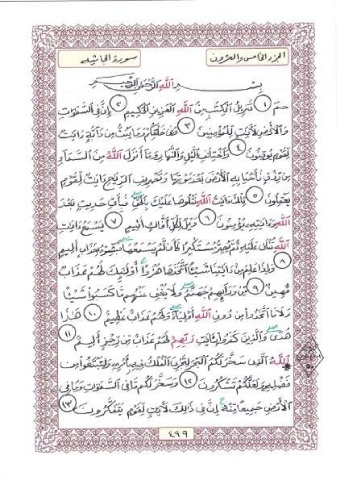 الجزء الخامس والعشرون
سورة الجاثية
بِسْمِ اللَّهِ الرَّحْمَٰنِ الرَّحِيمِ
حمٓ ١ تَنزِيلُ الْكِتَٰبِ مِنَ اللَّهِ الْعَزِيزِ الْحَكِيمِ ٢ إِنَّ فِي السَّمَٰوَٰتِ
وَالْأَرْضِ لَءَايَٰتٍ لِّلْمُؤْمِنِينَ ٣ وَفِي خَلْقِكُمْ وَمَا يَبُثُّ مِن دَآبَّةٍ ءَايَٰتٌ
لِّقَوْمٍ يُوقِنُونَ ٤ وَاخْتِلَٰفِ الَّيْلِ وَالنَّهَارِ وَمَآ أَنزَلَ اللَّهُ مِنَ السَّمَآءِ
مِن رِّزْقٍ فَأَحْيَا بِهِ الْأَرْضَ بَعْدَ مَوْتِهَا وَتَصْرِيفِ الرِّيَٰحِ ءَايَٰتٌ لِّقَوْمٍ
يَعْقِلُونَ ٥ تِلْكَ ءَايَٰتُ اللَّهِ نَتْلُوهَا عَلَيْكَ بِالْحَقِّ فَبِأَيِّ حَدِيثٍ بَعْدَ
اللَّهِ وَءَايَٰتِهِ يُؤْمِنُونَ ٦ وَيْلٌ لِّكُلِّ أَفَّاكٍ أَثِيمٍ ٧ يَسْمَعُ ءَايَٰتِ
اللَّهِ تُتْلَىٰ عَلَيْهِ ثُمَّ يُصِرُّ مُسْتَكْبِرًا كَأَن لَّمْ يَسْمَعْهَا فَبَشِّرْهُ بِعَذَابٍ أَلِيمٍ
٨ وَإِذَا عَلِمَ مِنْ ءَايَٰتِنَا شَيْـًٔا اتَّخَذَهَا هُزُوًا أُولَٰٓئِكَ لَهُمْ عَذَابٌ
مُّهِينٌ ٩ مِّن وَرَآئِهِمْ جَهَنَّمُ وَلَا يُغْنِي عَنْهُم مَّا كَسَبُوا شَيْـًٔا
وَلَا مَا اتَّخَذُوا مِن دُونِ اللَّهِ أَوْلِيَآءَ وَلَهُمْ عَذَابٌ عَظِيمٌ ١٠ هَٰذَا
هُدًى وَالَّذِينَ كَفَرُوا بِـَٔايَٰتِ رَبِّهِمْ لَهُمْ عَذَابٌ مِّن رِّجْزٍ أَلِيمٌ ١١
اللَّهُ الَّذِي سَخَّرَ لَكُمُ الْبَحْرَ لِتَجْرِيَ الْفُلْكُ فِيهِ بِأَمْرِهِ وَلِتَبْتَغُوا مِن
فَضْلِهِ وَلَعَلَّكُمْ تَشْكُرُونَ ١٢ وَسَخَّرَ لَكُم مَّا فِي السَّمَٰوَٰتِ وَمَا فِي
الْأَرْضِ جَمِيعًا مِّنْهُ إِنَّ فِي ذَٰلِكَ لَءَايَٰتٍ لِّقَوْمٍ يَتَفَكَّرُونَ ١٣
٤٩٩